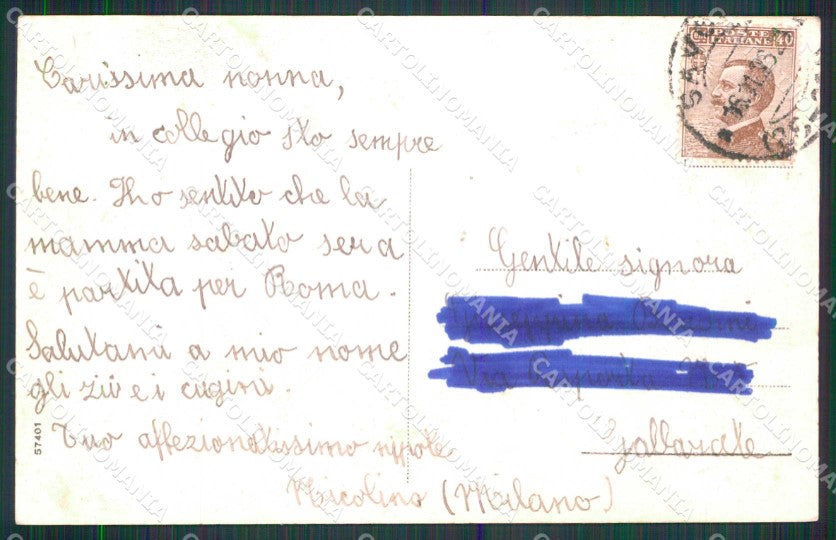 Carissima nonna,
in collegio sto sempre
bene. Ho sentito che la
mamma sabato sera
è partita per Roma.
Salutami a mio nome
gli zii e i cugini.
Tuo affezionatissimo nipote
Nicolino (Milano)
57401
POSTE
ITALIANE
40
Gentile signora
Via
Gallarate
CARTOLINOMANIA